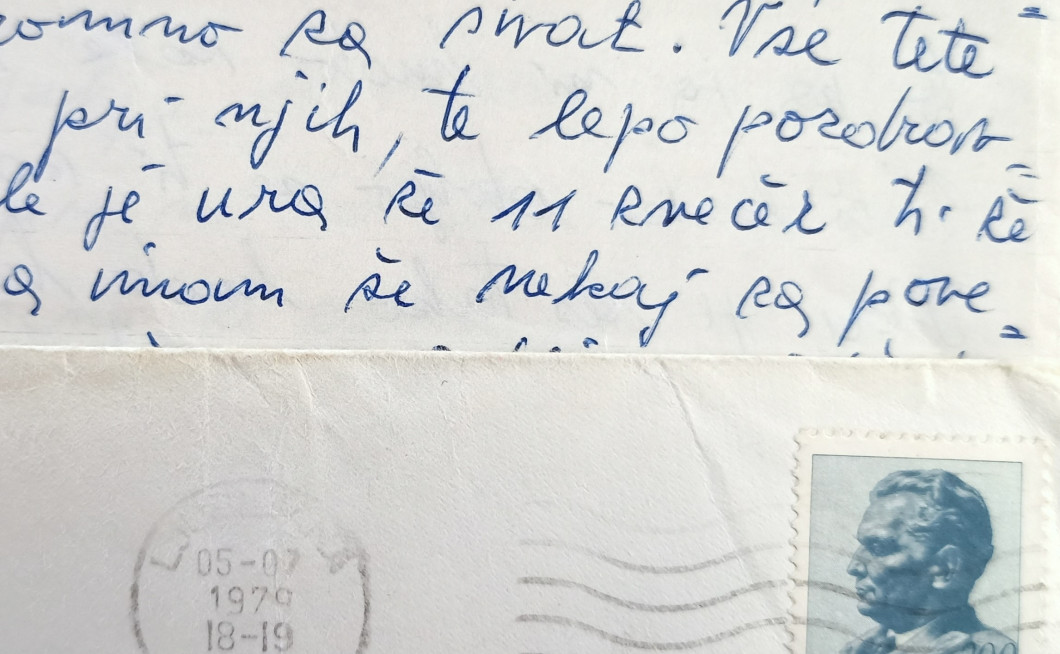 za šivat. Vse tete =
pri njih, te lepo pozdrav
je ura že 11 zvečer ki že
imam še nekaj za pove =
05-07
1979
18-19